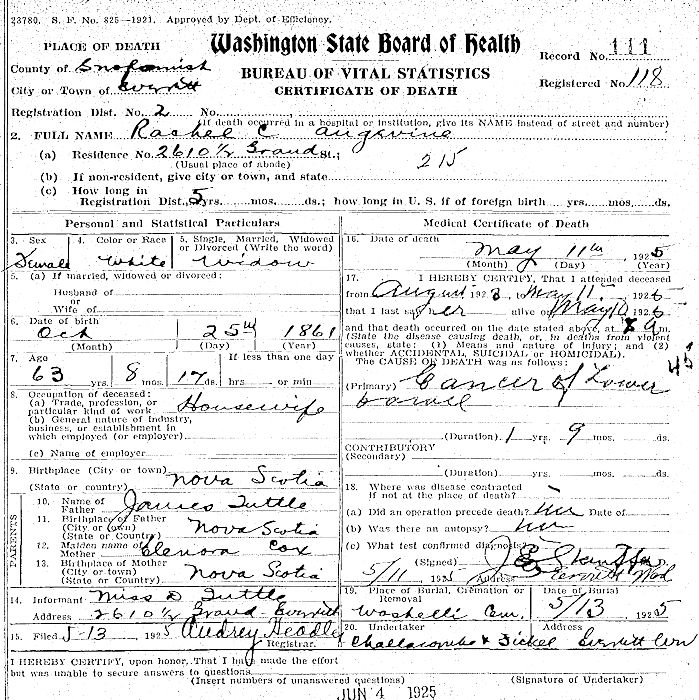 23780. S. F. No. 825—1921. Approved by Dept. of Efficiency.
PLACE OF DEATH
Washington State Board of Health
Record No. 111
County of Snohomish
BUREAU OF VITAL STATISTICS
City or Town of Everett
CERTIFICATE OF DEATH
Registered No. 118
Registration Dist. No. 2 No.
(If death occurred in a hospital or institution, give its NAME instead of street and number)
2. FULL NAME Rachel C Angevine
(a) Residence No. 2610½ Grand St.; 215
(Usual place of abode)
(b) If non-resident, give city or town, and state
(c) How long in
Registration Dist., 5 yrs. mos. ds.; how long in U. S. if of foreign birth yrs. mos. ds.
Personal and Statistical Particulars
3. Sex 4. Color or Race 5. Single, Married, Widowed
or Divorced (Write the word)
Female White Widow
5. (a) If married, widowed or divorced:
Husband of
or
Wife of
6. Date of birth
Oct 25th 1861
(Month) (Day) (Year)
7. Age If less than one day
63 yrs. 8 mos. 17 ds. hrs or min
8. Occupation of deceased:
(a) Trade, profession, or
particular kind of work Housewife
(b) General nature of industry,
business, or establishment in
which employed (or employer)
(c) Name of employer
9. Birthplace (City or town)
(State or country) Nova Scotia
PARENTS
10. Name of
Father James Tuttle
11. Birthplace of Father
(City or town) Nova Scotia
(State or Country)
12. Maiden name of
Mother Elenora Cox
13. Birthplace of Mother
(City or town) Nova Scotia
(State or Country)
14. Informant Miss D Tuttle
Address 2610½ Grand Everett
15. Filed 5-13 1925 Audrey Headlee
Registrar.
Medical Certificate of Death
16. Date of death
May 11th, 1925
(Month) (Day) (Year)
17. I HEREBY CERTIFY, That I attended deceased
from August 1923, May 11 1925
that I last saw her alive on May 10 1925
and that death occurred on the date stated above, at 8 a m.
(State the disease causing death, or, in deaths from violent
causes, state: (1) Means and nature of injury; and (2)
whether ACCIDENTAL, SUICIDAL or HOMICIDAL).
The CAUSE OF DEATH was as follows: 45
(Primary) Cancer of Lower
bowel
(Duration) 1 yrs. 9 mos. ds.
CONTRIBUTORY
(Secondary)
(Duration) yrs. mos. ds.
18. Where was disease contracted
if not at the place of death?
(a) Did an operation precede death? Date of
(b) Was there an autopsy?
(c) What test confirmed diagnosis?
(Signed)
5/11 1925 Address Everett Wash
19. Place of Burial, Cremation or
Removal
Date of Burial
Washelli Cem. 5/13 1925
20. Undertaker Address
Challacombe & Fickel Everett Wn
I HEREBY CERTIFY, upon honor, That I have made the effort
but was unable to secure answers to questions
(Insert numbers of unanswered questions) (Signature of Undertaker)
JUN 4 1925